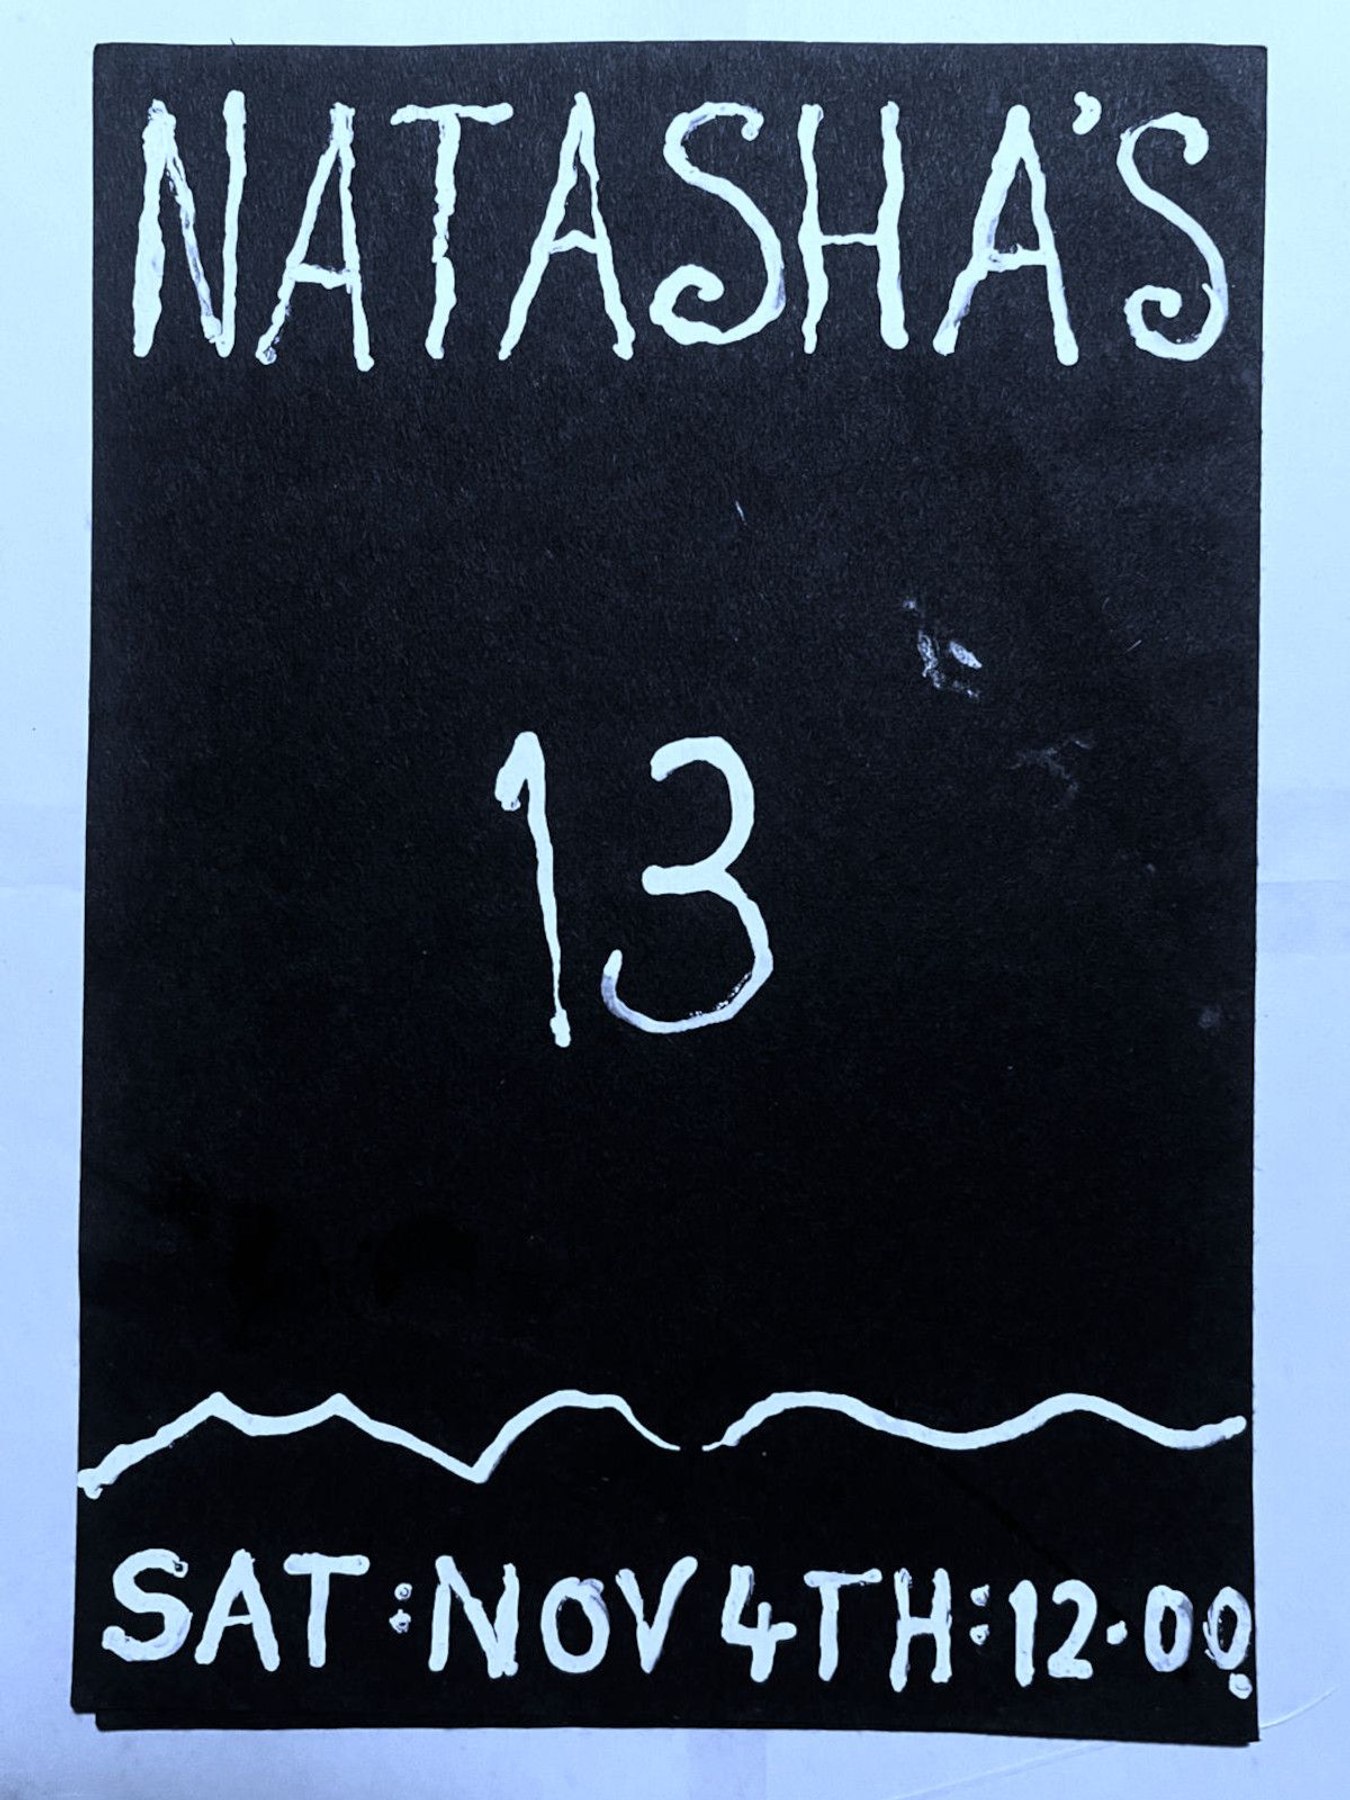 NATASHA'S
13
SAT:NOV 4TH:12.00